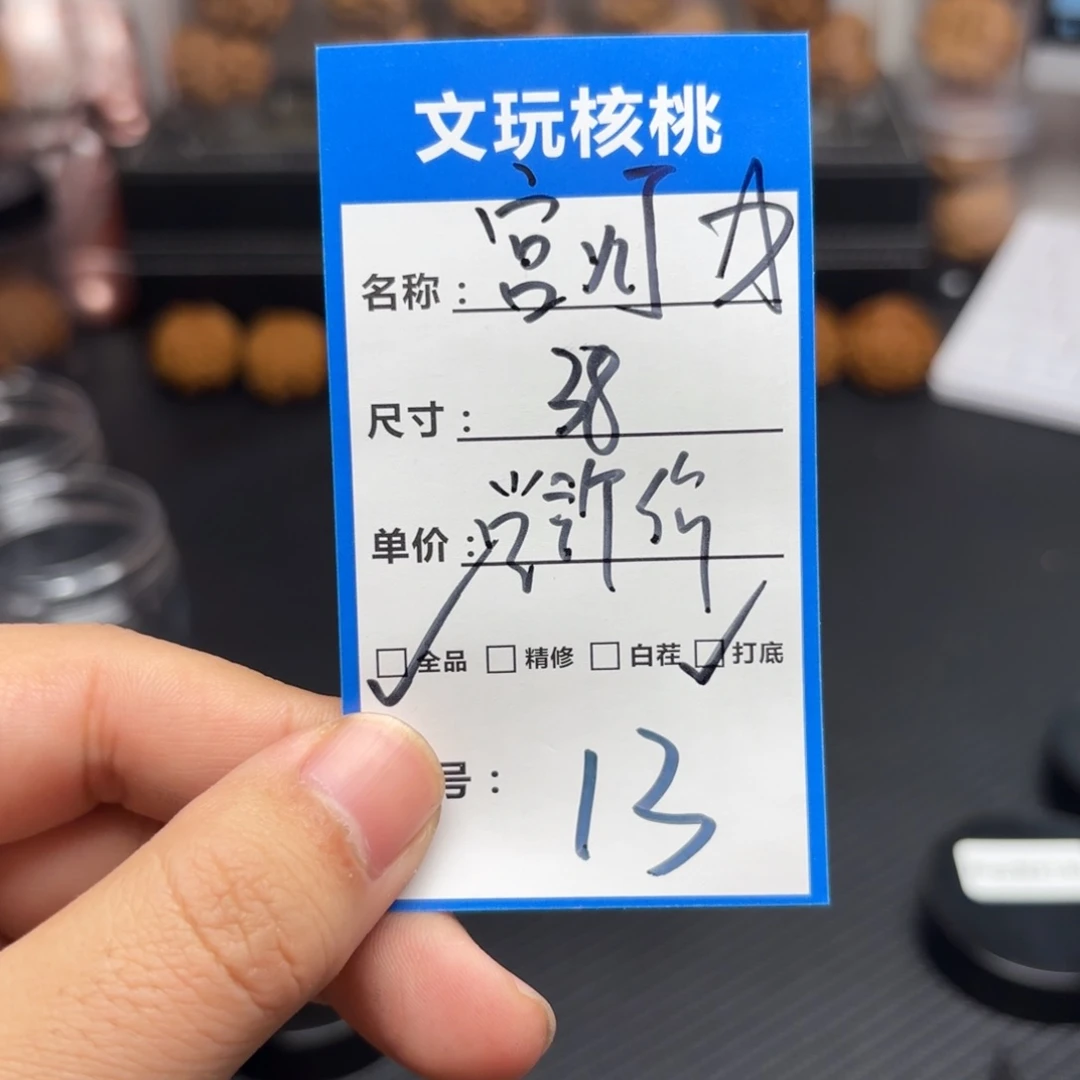 文玩核桃
名称：宫灯
尺寸：38
单价：
全品 精修 白茬 打底
号：13